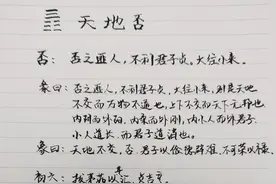 天地否
否：否之匪人，不利君子贞。大往小来。
彖曰：否之匪人，不利君子贞，大往小来，则是天地
不交而万物不通也，上下不交而天下无邦也。
内阴而外阳，内柔而外刚，内小人而外君子，
小人道长，而君子道消也。
象曰：天地不交，否，君子以俭德辟难，不可荣以禄。
初六：拔茅茹以其汇，贞吉亨。